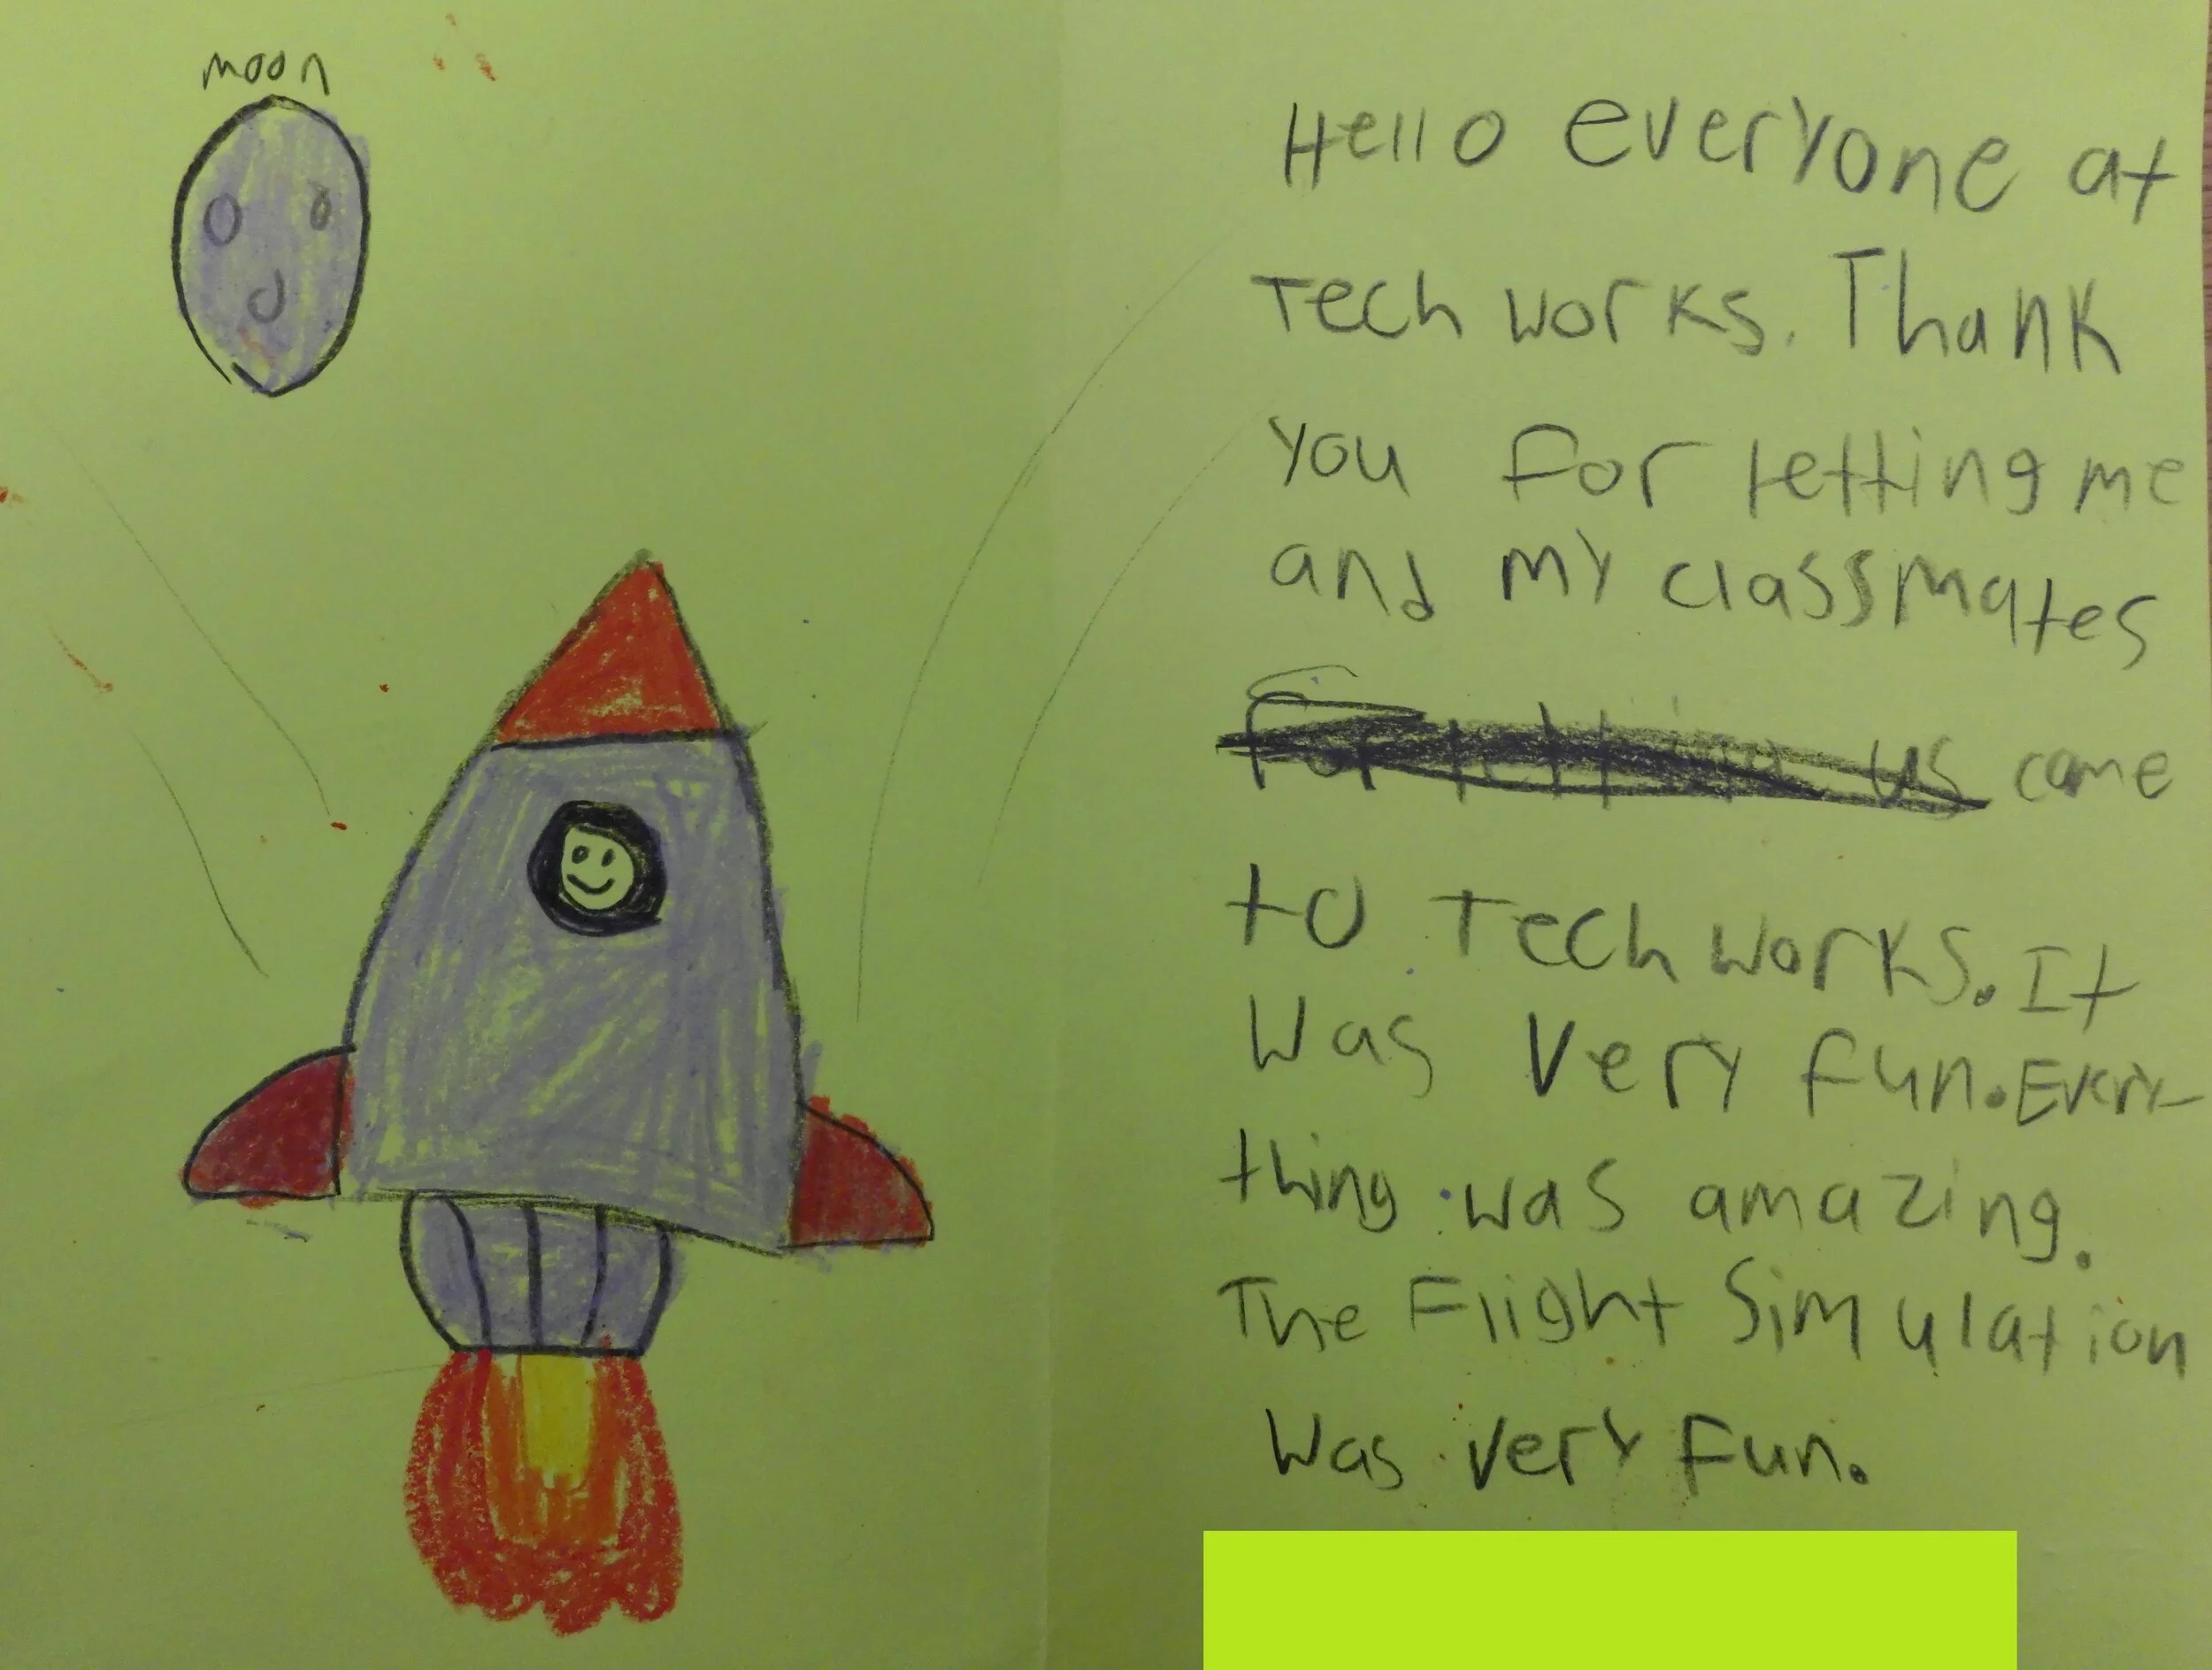 moon
Hello everyone at
Tech works. Thank
you for letting me
and my classmates
For letting us come
to Tech works. It
was very fun. Every-
thing was amazing.
The Flight Simulation
was very fun.